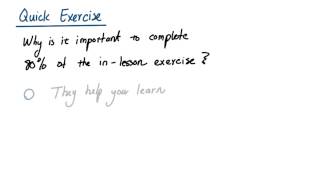 Quick Exercise
Why is it important to complete
80% of the in-lesson exercise?
They help you learn